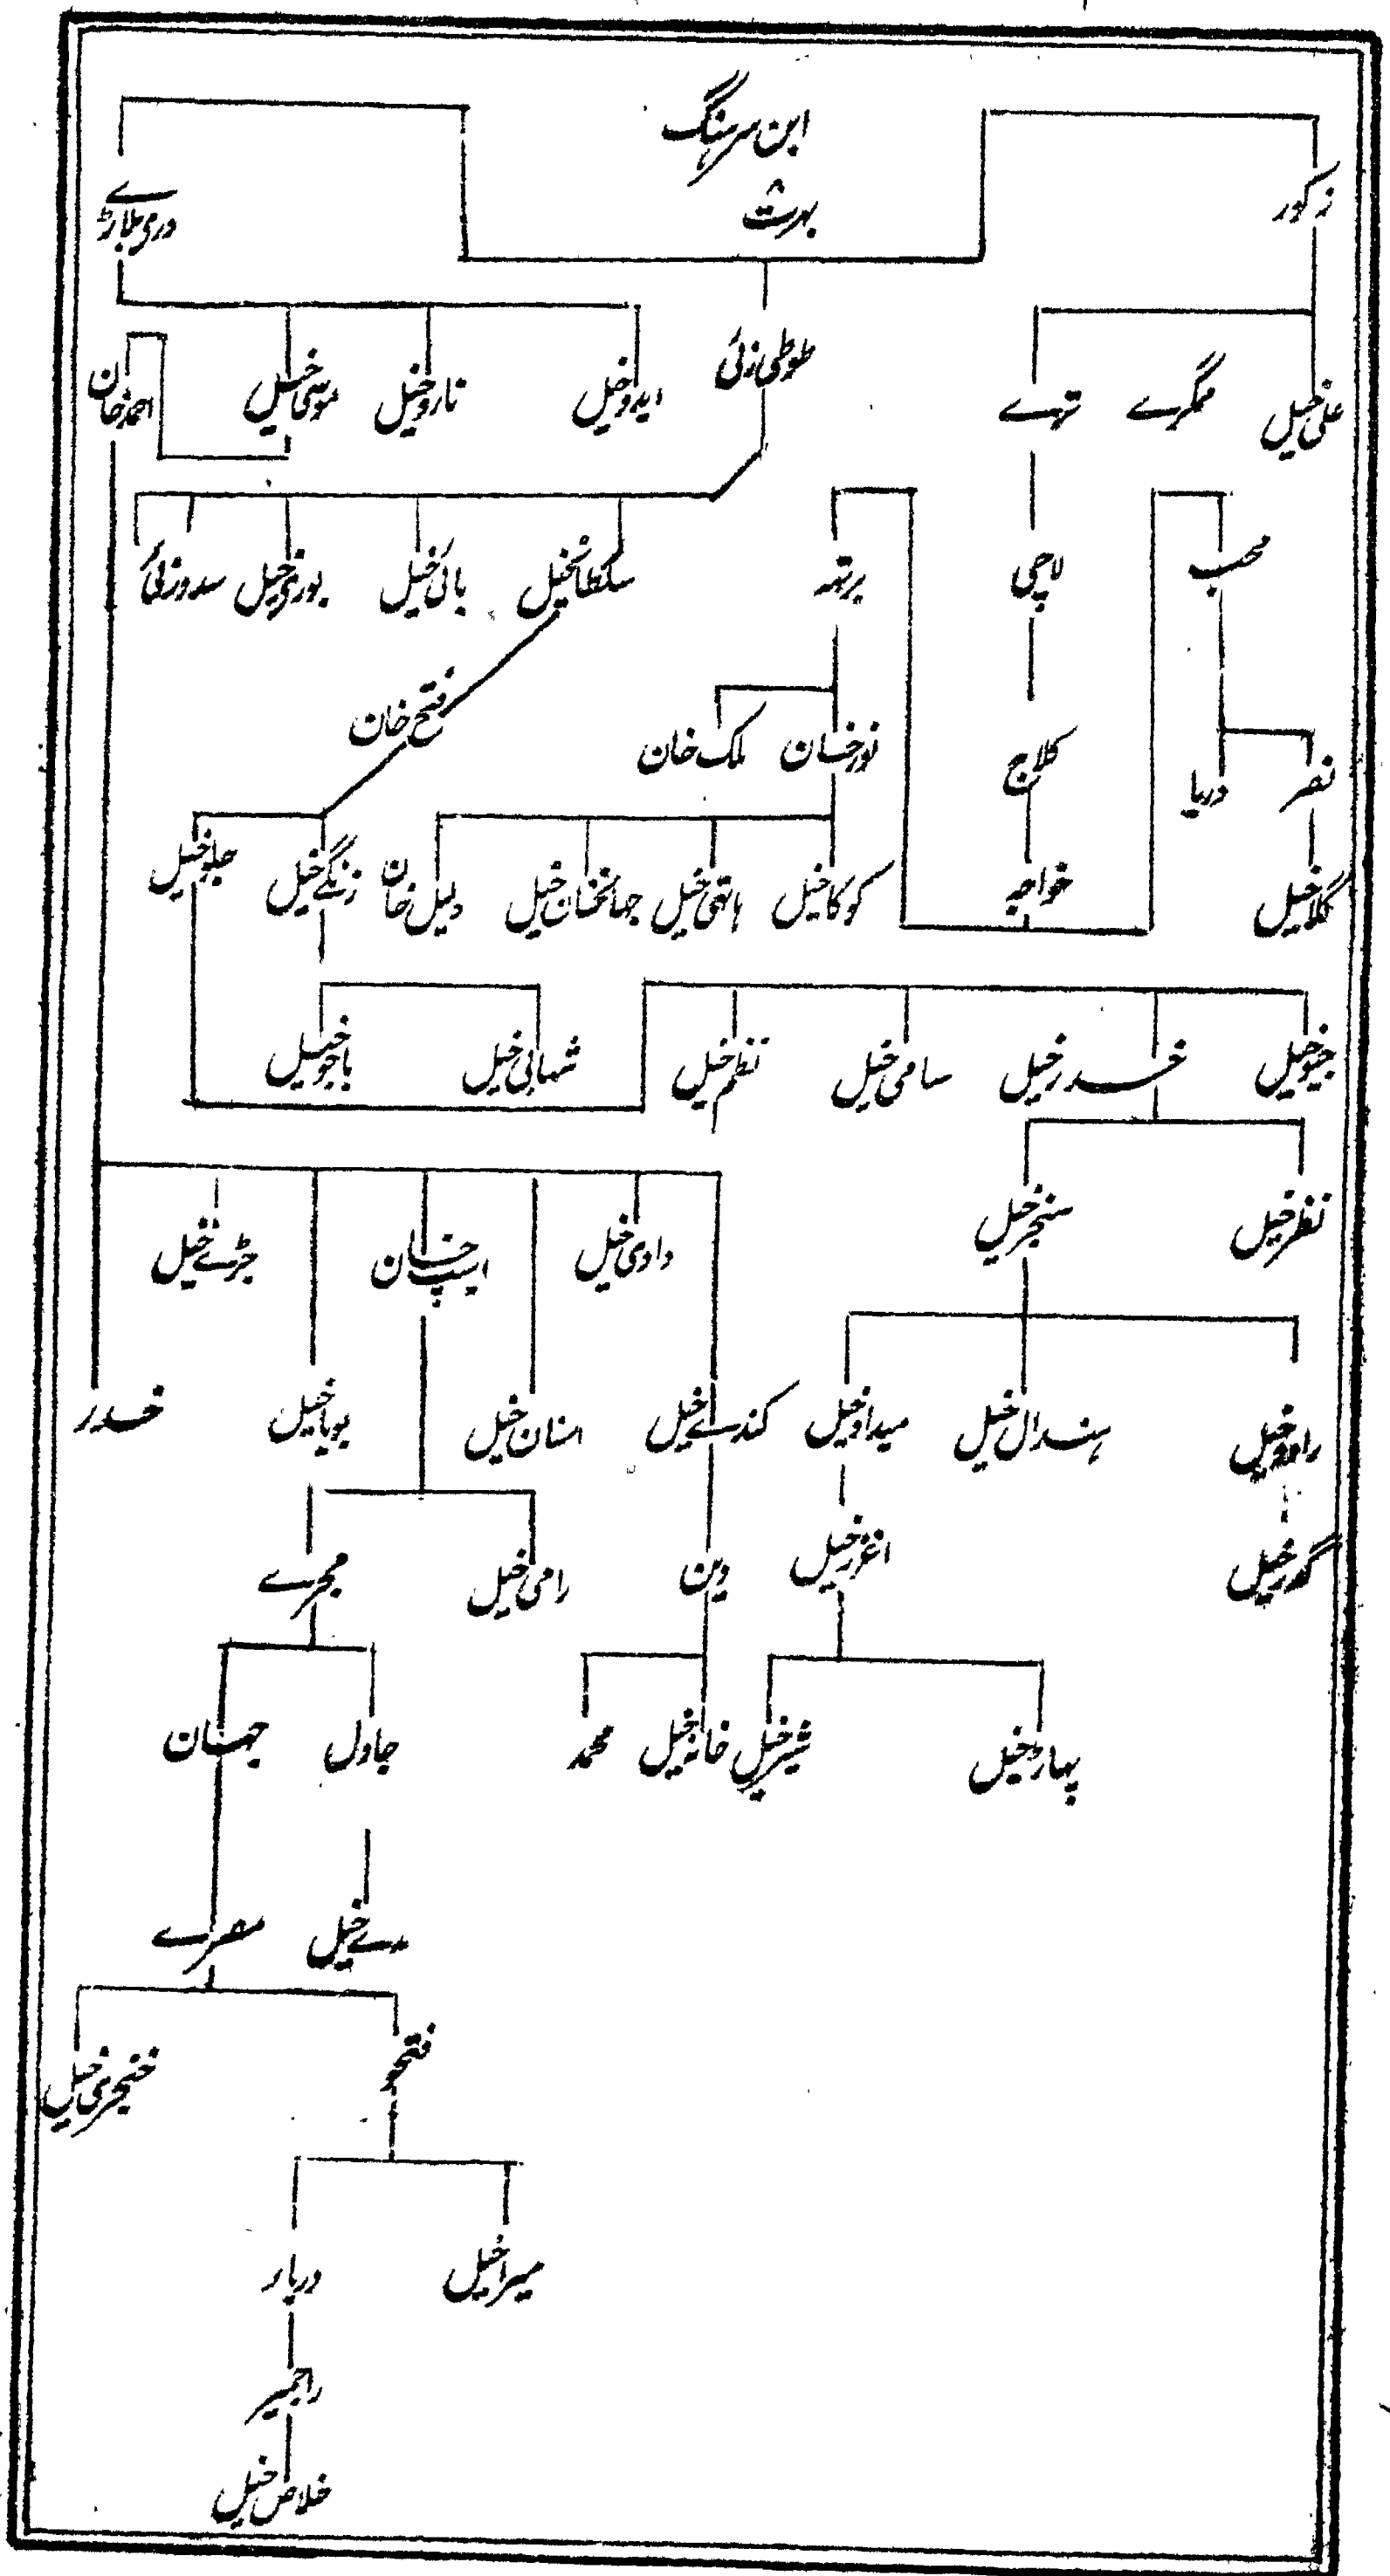 ابن سرہنگ
بہرت
زکور
دری پلارڑے
علی خیل
ممگرے
تہے
طوطی زئی
ایدو خیل
نارو خیل
موسی خیل
احمد خان
محب
لاچی
برتہ
سلطان خیل
بائی خیل
بوری خیل
سدوزئی
فتح خان
نصر
دریا
کلاج
نورخان
ملک خان
گلا خیل
خواجہ
کوکا خیل
ہاتھی خیل
جہانخان خیل
دلیل خان
زنگے خیل
جلو خیل
جیو خیل
خدر خیل
سامی خیل
نظم خیل
شہابی خیل
باجو خیل
نظر خیل
سنجر خیل
دادی خیل
اسپ خان
جڑے خیل
راوو خیل
ہندال خیل
میداد خیل
کندے خیل
اسنان خیل
یوپا خیل
خدر
گدر خیل
اغزر خیل
دین
رامی خیل
مجرے
پہاڑ خیل
شیر خیل
خانہ خیل
محمد
جاول
جہان
مدے خیل
مصرے
فتحو
خنجری خیل
میرا خیل
دریار
راجمیر
خلاص خیل